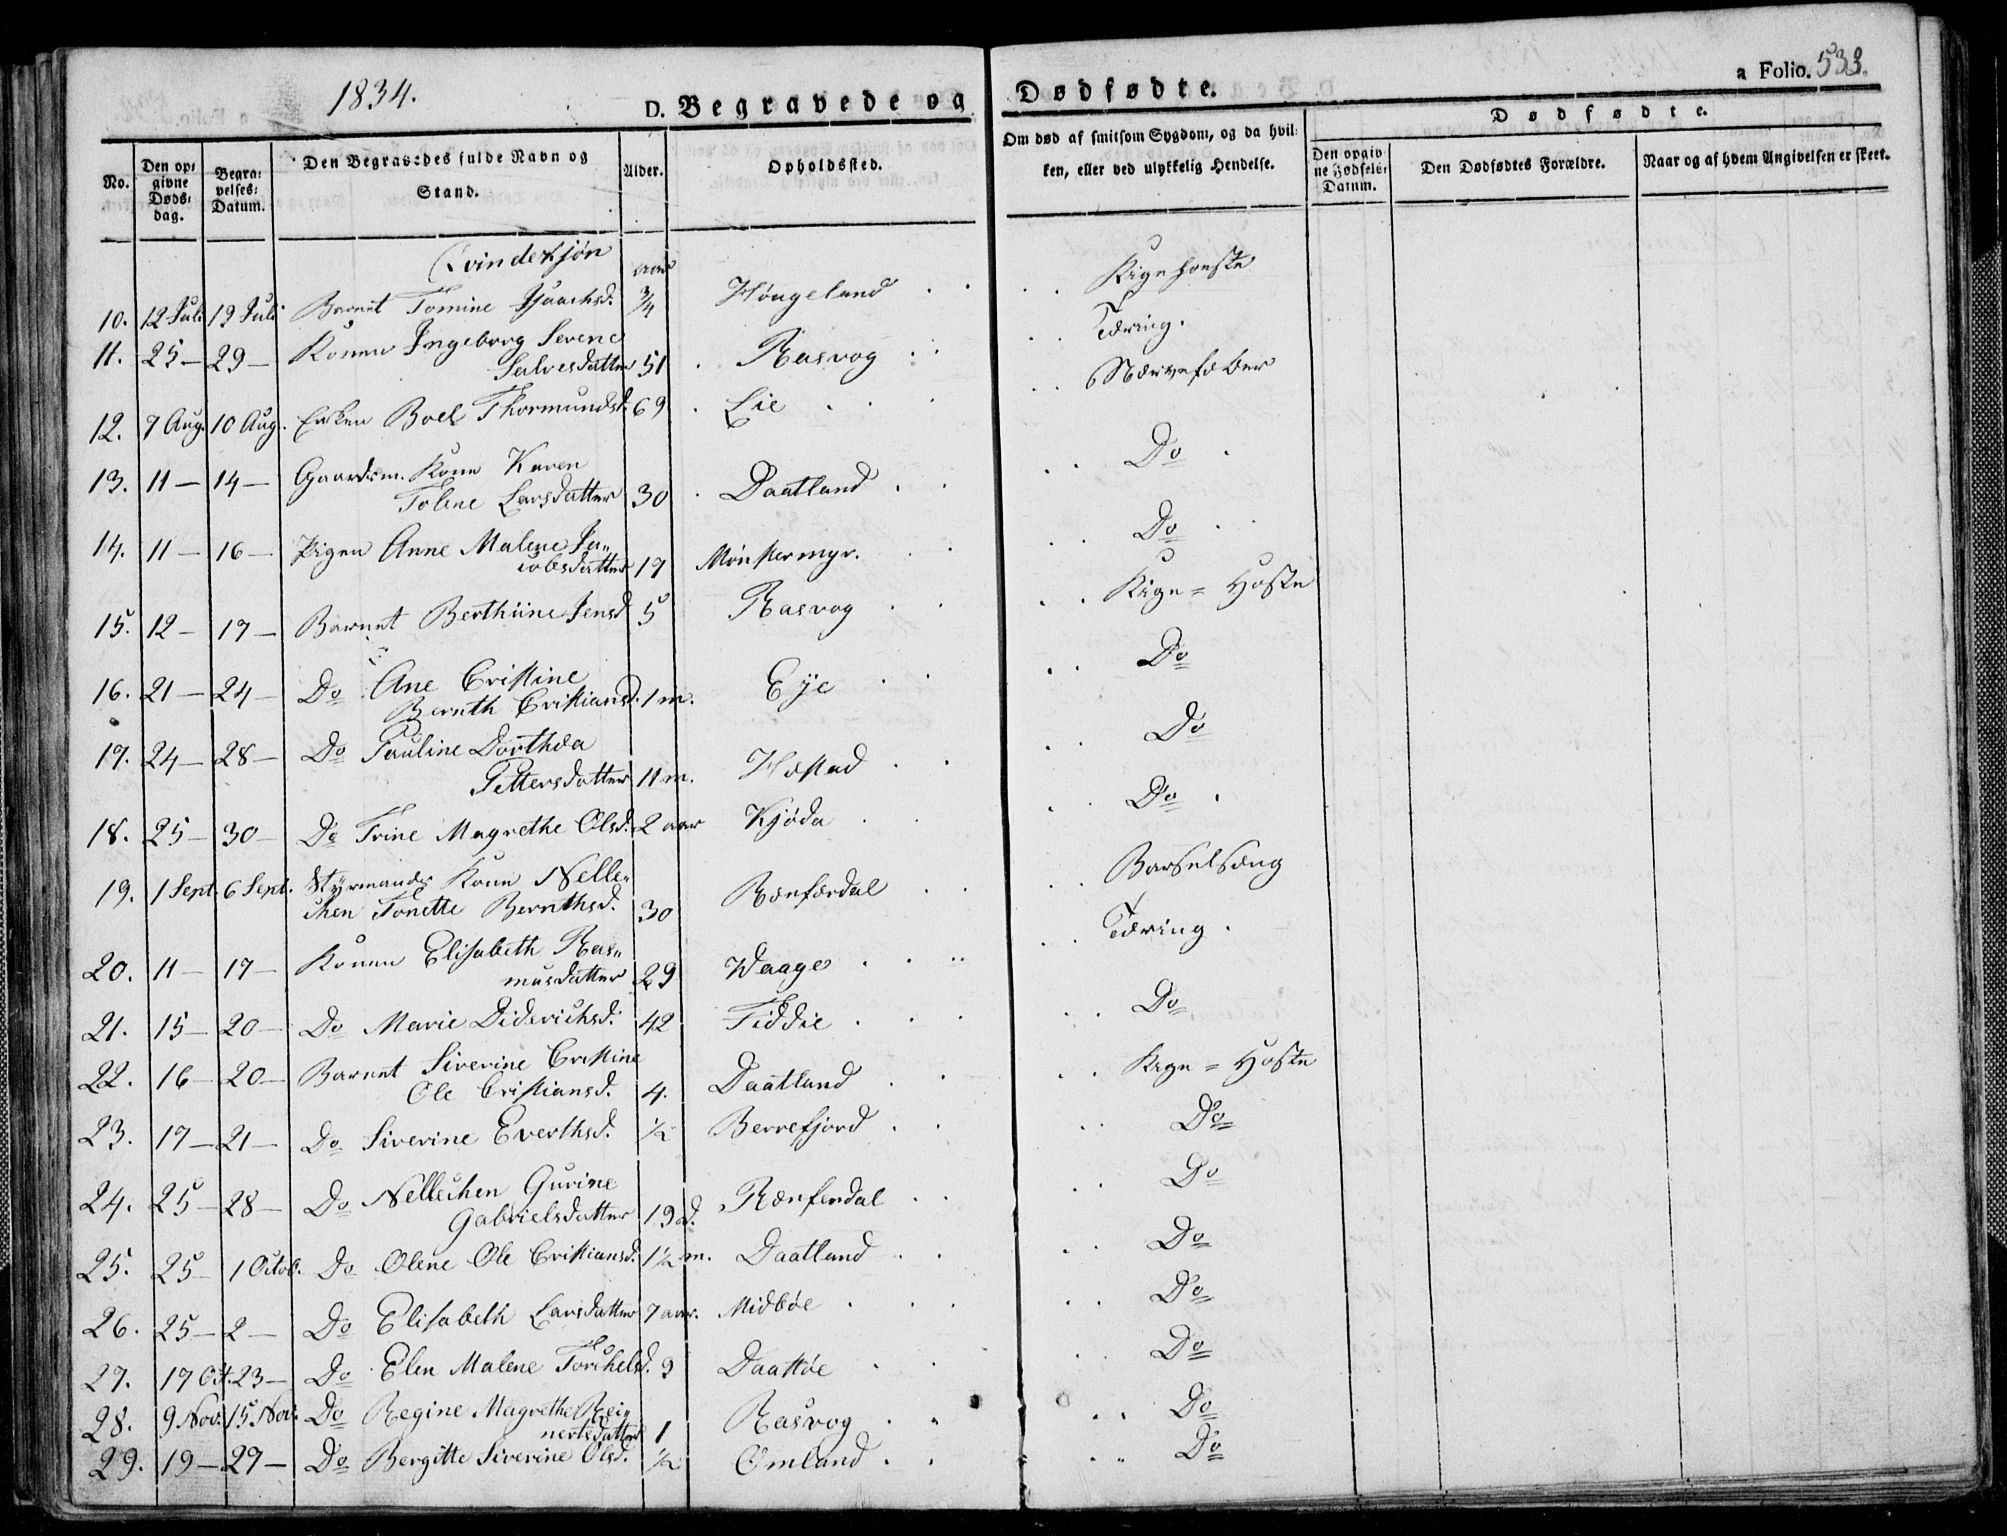 1834.
D. Begravede og Dødfødte. a Folio. 533.
No. Den opgivne Dødsdag. Begravelses-Datum. Den Begravedes fulde Navn og Stand. Alder. Opholdssted. Om død af smitsom Sygdom, og da hvilken, eller ved ulykkelig Hendelse. Dødfødte.
Den opgivne Fødsels-Datum. Den Dødfødtes Forældre. Naar og af hvem Angivelsen er skeet.
Qvindekjøn aar
10. 12 Juli 19 Juli Barnet Tomine Isaachsd. 3/4 Høugeland Kighoste
11. 25 - 29 - Konen Ingeborg Serene Tæring.
Salvesdatter 51 Rasvog
12. 7 Aug. 10 Aug. Enken Boel Thormundsd. 69 Lie Nervefeber
13. 11 - 14 - Gaardm. Kone Karen Do
Toline Larsdatter 30 Daatland
14. 11 - 16 - Pigen Anne Malene Ja- Do
cobsdatter 17 Mønstermyr.
15. 12 - 17 - Barnet Berthine Jensd 5 Rasvog Kige = Hoste
16. 21 - 24 - Do Ane Cristine Do
Bernth Cristiansd. 1 m. Eÿe
17. 24 - 28 - Do Pauline Dorthea Do
Pettersdatter 11 m. Hestad
18. 25 - 30 - Do Trine Magrethe Olsd. 2 aar Kjøda Do
19. 1 Sept. 6 Sept. Styrmands Kone Nelle- Barselsæng
chen Tonette Bernthsd. 30 Rænferdal
20. 11 - 17 - Konen Elisabeth Ras- Tæring.
musdatter 29 Waage
21. 15 - 20 - Do Marie Diderichsd. 42 Fiddie Do
22. 16 - 20 - Barnet Siverine Cristine Kige = Hoste
Ole Cristiansd. 4. Daatland
23. 17 - 21 - Do Siverine Everthsd. 1/2 Berrefjord Do
24. 25 - 28 - Do Nellechen Gurine Do
Gabrielsdatter 19 d. Rænferdal
25. 25 - 1 Octob. Do Olene Ole Cristiansd. 1 1/2 m. Daatland Do
26. 25 - 2 - Do Elisabeth Larsdatter 7 aar. Midbøe Do
27. 17 Oct. 23 - Do Elen Malene Torchelsd. 9 Daatløe Do
28. 9 Nov. 15 Nov. Do Regine Magrethe Rei- Do
nertsdatter 1 Rasvog
29. 19 - 27 - Do Bergitte Siverine Olsd. 1/2 Omland Do